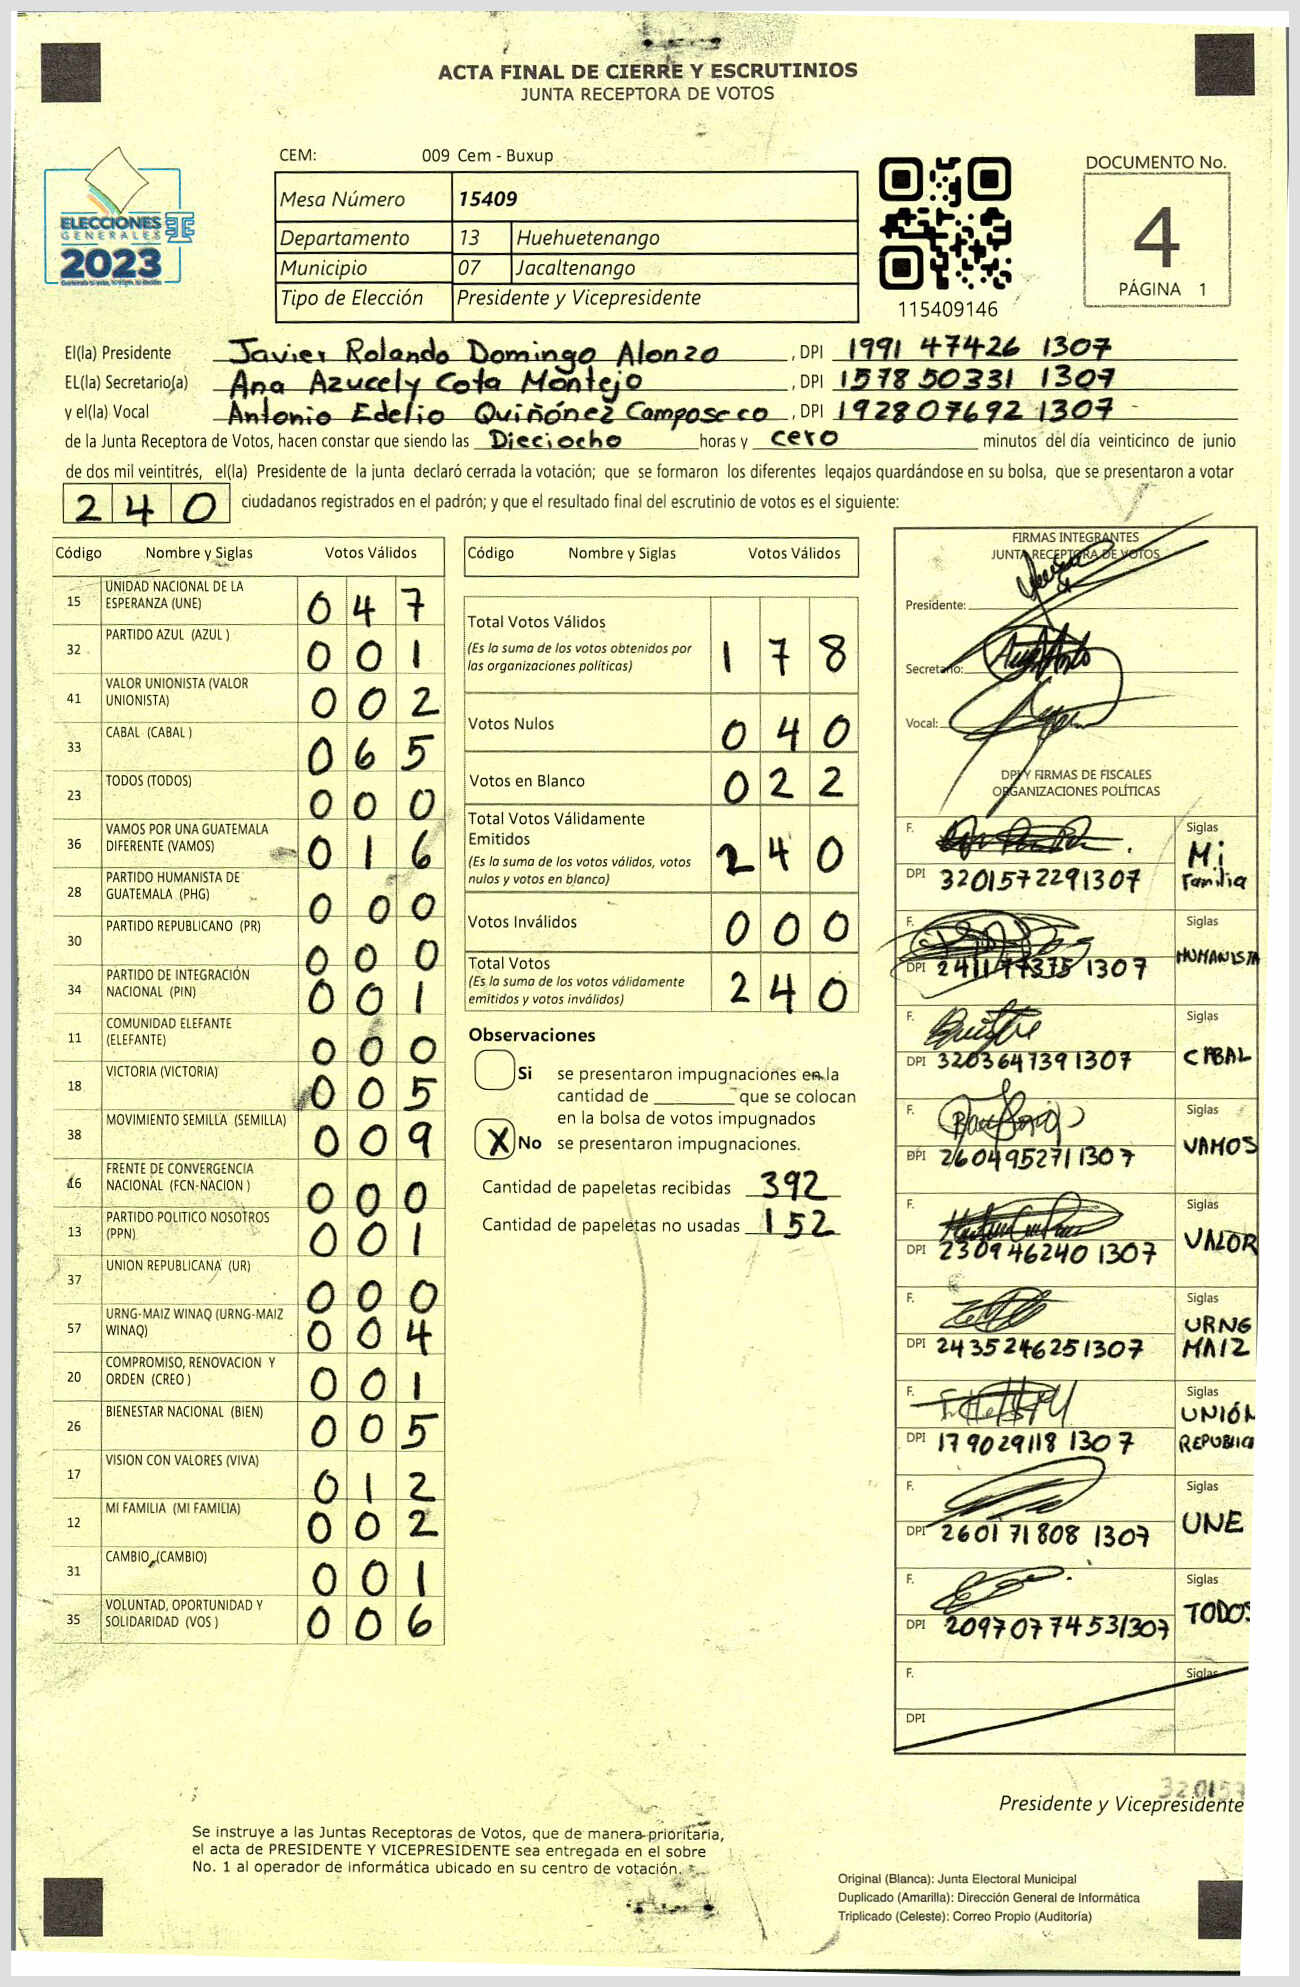 ACTA FINAL DE CIERRE Y ESCRUTINIOS
JUNTA RECEPTORA DE VOTOS
CEM: 009 Cem - Buxup
ELECCIONES
GENERALES
2023
Mesa Número 15409
Departamento 13 Huehuetenango
Municipio 07 Jacaltenango
Tipo de Elección Presidente y Vicepresidente
115409146
DOCUMENTO No.
4
PÁGINA 1
El(la) Presidente Javier Rolando Domingo Alonzo, DPI 1991 47426 1307
EL(la) Secretario(a) Ana Azucely Cota Montejo, DPI 1578 50331 1307
y el(la) Vocal Antonio Edelio Quiñónez Camposeco, DPI 1928 07692 1307
de la Junta Receptora de Votos, hacen constar que siendo las Dieciocho horas y cero minutos del día veinticinco de junio
de dos mil veintitrés, el(la) Presidente de la junta declaró cerrada la votación; que se formaron los diferentes legajos quardándose en su bolsa, que se presentaron a votar
240 ciudadanos registrados en el padrón; y que el resultado final del escrutinio de votos es el siguiente:
Código Nombre y Siglas Votos Válidos
15 UNIDAD NACIONAL DE LA ESPERANZA (UNE) 0 4 7
32 PARTIDO AZUL (AZUL ) 0 0 1
41 VALOR UNIONISTA (VALOR UNIONISTA) 0 0 2
33 CABAL (CABAL ) 0 6 5
23 TODOS (TODOS) 0 0 0
36 VAMOS POR UNA GUATEMALA DIFERENTE (VAMOS) 0 1 6
28 PARTIDO HUMANISTA DE GUATEMALA (PHG) 0 0 0
30 PARTIDO REPUBLICANO (PR) 0 0 0
34 PARTIDO DE INTEGRACIÓN NACIONAL (PIN) 0 0 1
11 COMUNIDAD ELEFANTE (ELEFANTE) 0 0 0
18 VICTORIA (VICTORIA) 0 0 5
38 MOVIMIENTO SEMILLA (SEMILLA) 0 0 9
16 FRENTE DE CONVERGENCIA NACIONAL (FCN-NACION ) 0 0 0
13 PARTIDO POLITICO NOSOTROS (PPN) 0 0 1
37 UNION REPUBLICANA (UR) 0 0 0
57 URNG-MAIZ WINAQ (URNG-MAIZ WINAQ) 0 0 4
20 COMPROMISO, RENOVACION Y ORDEN (CREO ) 0 0 1
26 BIENESTAR NACIONAL (BIEN) 0 0 5
17 VISION CON VALORES (VIVA) 0 1 2
12 MI FAMILIA (MI FAMILIA) 0 0 2
31 CAMBIO (CAMBIO) 0 0 1
35 VOLUNTAD, OPORTUNIDAD Y SOLIDARIDAD (VOS ) 0 0 6
Código Nombre y Siglas Votos Válidos
Total Votos Válidos 1 7 8
(Es la suma de los votos obtenidos por
las organizaciones políticas)
Votos Nulos 0 4 0
Votos en Blanco 0 2 2
Total Votos Válidamente
Emitidos 2 4 0
(Es la suma de los votos válidos, votos
nulos y votos en blanco)
Votos Inválidos 0 0 0
Total Votos 2 4 0
(Es la suma de los votos válidamente
emitidos y votos inválidos)
Observaciones
Si se presentaron impugnaciones en la
cantidad de ________ que se colocan
en la bolsa de votos impugnados
X No se presentaron impugnaciones.
Cantidad de papeletas recibidas 392
Cantidad de papeletas no usadas 152
FIRMAS INTEGRANTES
JUNTA RECEPTORA DE VOTOS
Presidente:
Secretario:
Vocal:
DPI Y FIRMAS DE FISCALES
ORGANIZACIONES POLÍTICAS
F. Siglas
DPI 3201572291307 Mi Familia
F. Siglas
DPI 1307 HUMANISTA
F. Siglas
DPI 3203647391307 CABAL
F. Siglas
DPI 2604952711307 VAMOS
F. Siglas
DPI 230946240 1307 VALOR
F. Siglas
DPI 2435246251307 URNG MAIZ
F. Siglas
DPI 179029118 1307 UNIÓN REPUBLIC
F. Siglas
DPI 2601 71808 1307 UNE
F. Siglas
DPI 20970774531307 TODOS
F. Siglas
DPI
320157
Presidente y Vicepresidente
Se instruye a las Juntas Receptoras de Votos, que de manera prioritaria,
el acta de PRESIDENTE Y VICEPRESIDENTE sea entregada en el sobre
No. 1 al operador de informática ubicado en su centro de votación.
Original (Blanca): Junta Electoral Municipal
Duplicado (Amarilla): Dirección General de Informática
Triplicado (Celeste): Correo Propio (Auditoría)